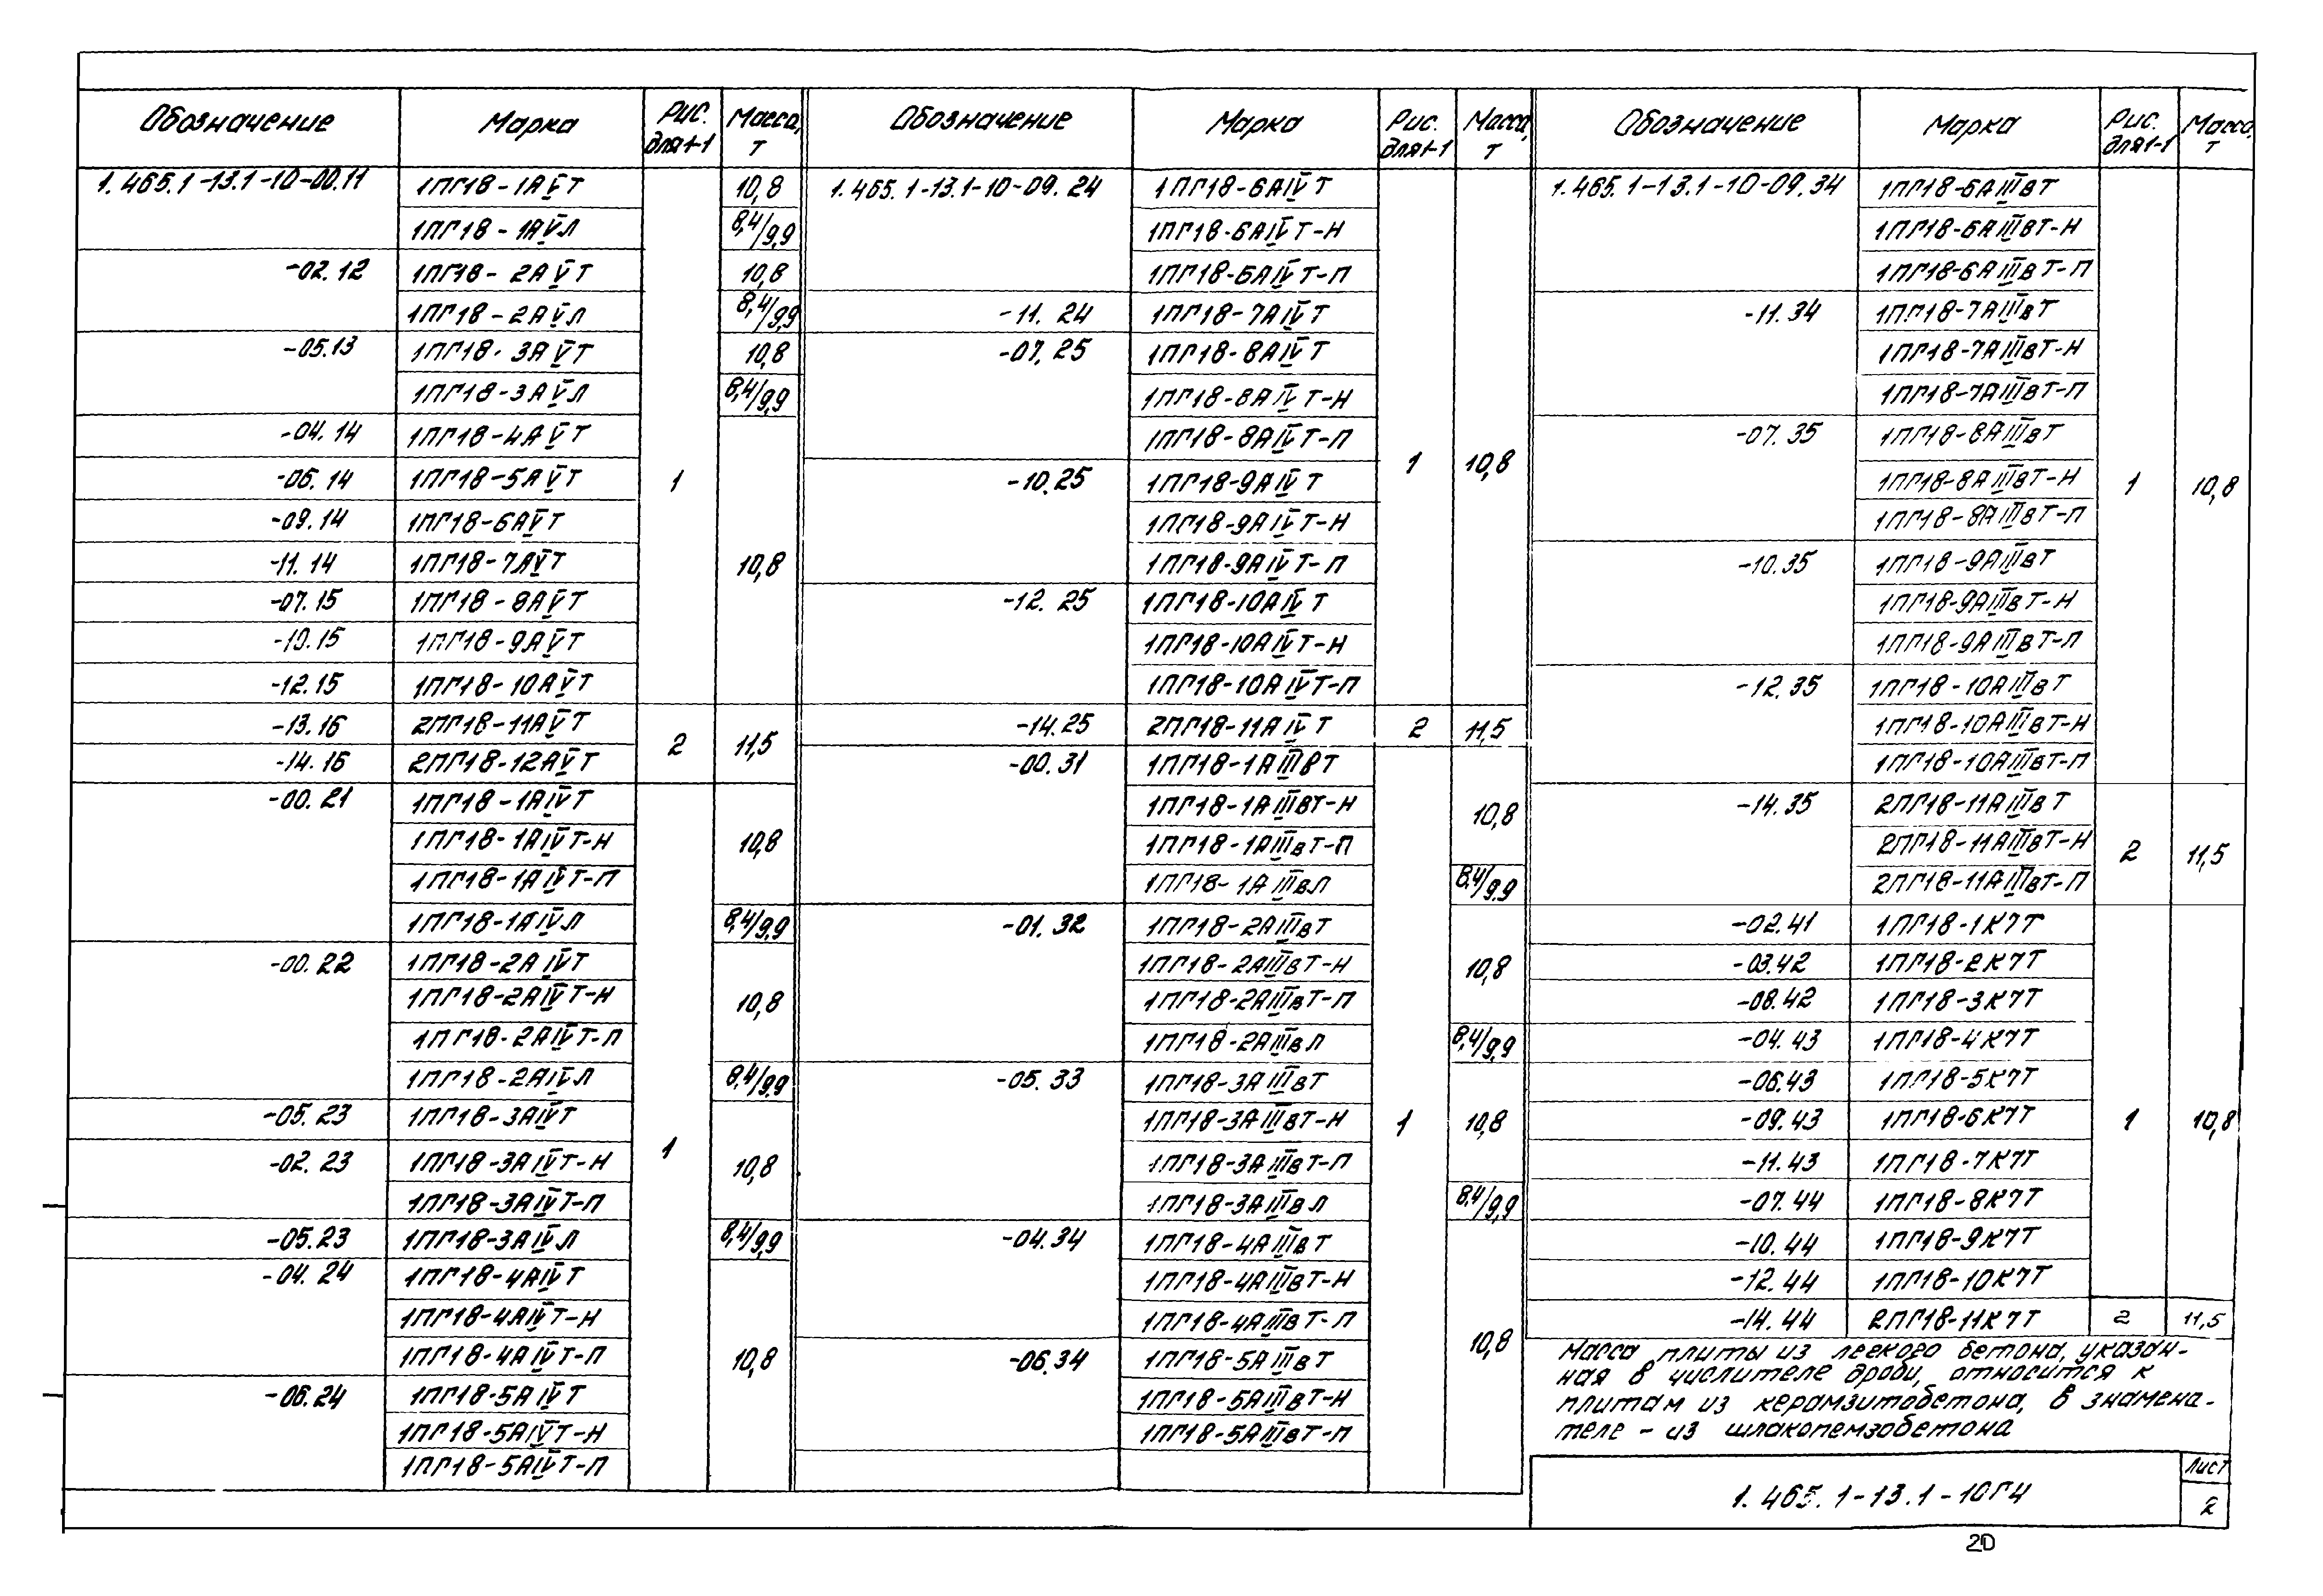 Обозначение Марка Рис. для 1-1 Масса, т
1.465.1-13.1-10-00.11 1ПГ18-1АⅤТ 1 10,8
1ПГ18-1АⅤЛ 8,4/9,9
-02.12 1ПГ18-2АⅤТ 10,8
1ПГ18-2АⅤЛ 8,4/9,9
-05.13 1ПГ18-3АⅤТ 10,8
1ПГ18-3АⅤЛ 8,4/9,9
-04.14 1ПГ18-4АⅤТ 10,8
-06.14 1ПГ18-5АⅤТ
-09.14 1ПГ18-6АⅤТ
-11.14 1ПГ18-7АⅤТ
-07.15 1ПГ18-8АⅤТ
-10.15 1ПГ18-9АⅤТ
-12.15 1ПГ18-10АⅤТ
-13.16 2ПГ18-11АⅤТ 2 11,5
-14.16 2ПГ18-12АⅤТ
-00.21 1ПГ18-1АⅣТ 1 10,8
1ПГ18-1АⅣТ-Н
1ПГ18-1АⅣТ-П
1ПГ18-1АⅣЛ 8,4/9,9
-00.22 1ПГ18-2АⅣТ 10,8
1ПГ18-2АⅣТ-Н
1ПГ18-2АⅣТ-П
1ПГ18-2АⅣЛ 8,4/9,9
-05.23 1ПГ18-3АⅣТ 10,8
-02.23 1ПГ18-3АⅣТ-Н
1ПГ18-3АⅣТ-П
-05.23 1ПГ18-3АⅣЛ 8,4/9,9
-04.24 1ПГ18-4АⅣТ 10,8
1ПГ18-4АⅣТ-Н
1ПГ18-4АⅣТ-П
-06.24 1ПГ18-5АⅣТ
1ПГ18-5АⅣТ-Н
1ПГ18-5АⅣТ-П
Обозначение Марка Рис. для 1-1 Масса, т
1.465.1-13.1-10-09.24 1ПГ18-6АⅣТ 1 10,8
1ПГ18-6АⅣТ-Н
1ПГ18-6АⅣТ-П
-11.24 1ПГ18-7АⅣТ
-07.25 1ПГ18-8АⅣТ
1ПГ18-8АⅣТ-Н
1ПГ18-8АⅣТ-П
-10.25 1ПГ18-9АⅣТ
1ПГ18-9АⅣТ-Н
1ПГ18-9АⅣТ-П
-12.25 1ПГ18-10АⅣТ
1ПГ18-10АⅣТ-Н
1ПГ18-10АⅣТ-П
-14.25 2ПГ18-11АⅣТ 2 11,5
-00.31 1ПГ18-1АⅢвТ 1 10,8
1ПГ18-1АⅢвТ-Н
1ПГ18-1АⅢвТ-П
1ПГ18-1АⅢвЛ 8,4/9,9
-01.32 1ПГ18-2АⅢвТ 10,8
1ПГ18-2АⅢвТ-Н
1ПГ18-2АⅢвТ-П
1ПГ18-2АⅢвЛ 8,4/9,9
-05.33 1ПГ18-3АⅢвТ 10,8
1ПГ18-3АⅢвТ-Н
1ПГ18-3АⅢвТ-П
1ПГ18-3АⅢвЛ 8,4/9,9
-04.34 1ПГ18-4АⅢвТ 10,8
1ПГ18-4АⅢвТ-Н
1ПГ18-4АⅢвТ-П
-06.34 1ПГ18-5АⅢвТ
1ПГ18-5АⅢвТ-Н
1ПГ18-5АⅢвТ-П
Обозначение Марка Рис. для 1-1 Масса, т
1.465.1-13.1-10-09.34 1ПГ18-6АⅢвТ 1 10,8
1ПГ18-6АⅢвТ-Н
1ПГ18-6АⅢвТ-П
-11.34 1ПГ18-7АⅢвТ
1ПГ18-7АⅢвТ-Н
1ПГ18-7АⅢвТ-П
-07.35 1ПГ18-8АⅢвТ
1ПГ18-8АⅢвТ-Н
1ПГ18-8АⅢвТ-П
-10.35 1ПГ18-9АⅢвТ
1ПГ18-9АⅢвТ-Н
1ПГ18-9АⅢвТ-П
-12.35 1ПГ18-10АⅢвТ
1ПГ18-10АⅢвТ-Н
1ПГ18-10АⅢвТ-П
-14.35 2ПГ18-11АⅢвТ 2 11,5
2ПГ18-11АⅢвТ-Н
2ПГ18-11АⅢвТ-П
-02.41 1ПГ18-1К7Т 1 10,8
-03.42 1ПГ18-2К7Т
-08.42 1ПГ18-3К7Т
-04.43 1ПГ18-4К7Т
-06.43 1ПГ18-5К7Т
-09.43 1ПГ18-6К7Т
-11.43 1ПГ18-7К7Т
-07.44 1ПГ18-8К7Т
-10.44 1ПГ18-9К7Т
-12.44 1ПГ18-10К7Т
-14.44 2ПГ18-11К7Т 2 11,5
Масса плиты из легкого бетона, указан-
ная в числителе дроби, относится к
плитам из керамзитобетона, в знамена-
теле - из шлакопемзобетона
1.465.1-13.1-10ГЧ
Лист
2
20